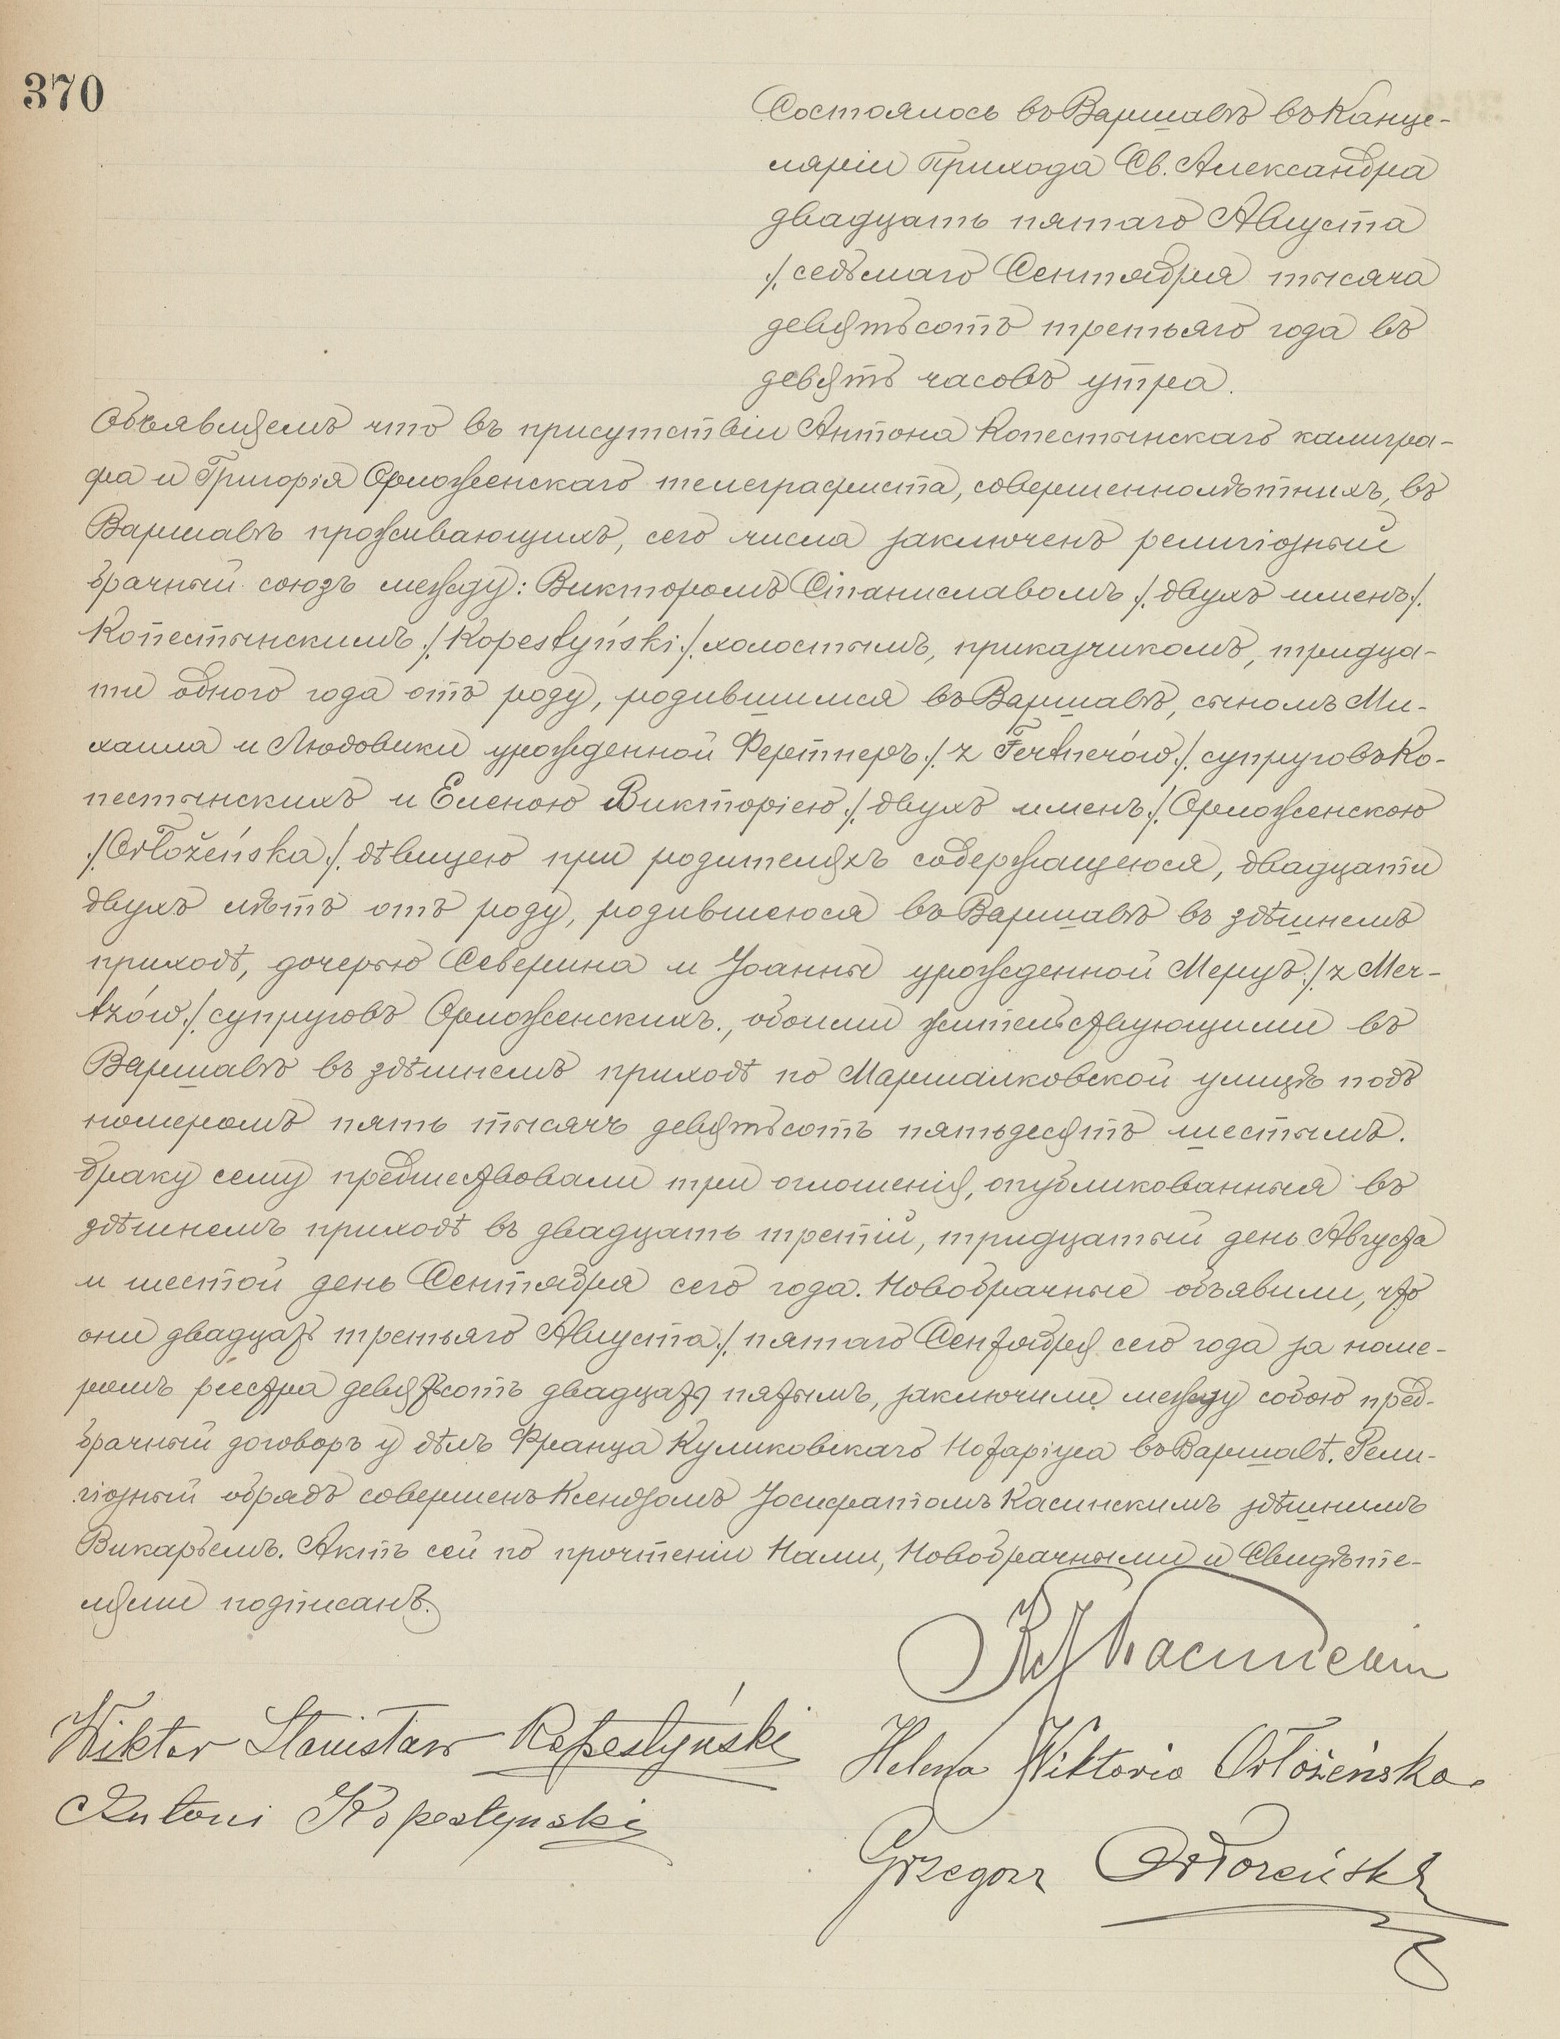 370
Состоялось въ Варшавѣ въ Канце-
ляріи прихода Св. Александра
двадцать пятаго Августа
/. седьмаго Сентября тысяча
девятьсотъ третьяго года въ
девять часовъ утра.
Объявляемъ что въ присутствіи Антона Копестынскаго калигра-
фа и Григорія Орложенскаго телеграфиста, совершеннолѣтнихъ, въ
Варшавѣ проживающихъ, сего числа заключенъ религіозный
брачный союзъ между: Викторомъ Станиславомъ /. двухъ именъ /.
Копестынскимъ /. Kopestyński /. холостымъ, приказчикомъ, тридца-
ти одного года отъ роду, родившимся въ Варшавѣ, сыномъ Ми-
хаила и Людовики урожденной Фертнеръ /. z Fertnerów /. супруговъ Ко-
пестынскихъ и Еленою Викторіею /. двухъ именъ /. Орложенскою
/. Orłożeńska /. дѣвицею при родителяхъ содержащеюся, двадцати
двухъ лѣтъ отъ роду, родившеюся въ Варшавѣ въ здѣшнемъ
приходѣ, дочерью Северина и Іоанны урожденной Мерцъ /. z Mer-
tzów /. супруговъ Орложенскихъ., обоими жительствующими въ
Варшавѣ въ здѣшнемъ приходѣ по Маршалковской улицѣ подъ
номеромъ пять тысячъ девятьсотъ пятьдесятъ шестымъ.
Браку сему предшествовали три оглошенія, опубликованныя въ
здѣшнемъ приходѣ въ двадцать третій, тридцатый день Августа
и шестой день Сентября сего года. Новобрачные объявили, что
они двадцать третьяго Августа /. пятаго Сентября сего года за номе-
ромъ реестра девятьсотъ двадцать пятымъ, заключили между собою пред-
брачный договоръ у дѣлъ Франца Куликовскаго Нотаріуса въ Варшавѣ. Рели-
гіозный обрядъ совершенъ Ксендзомъ Іосифатомъ Касинскимъ здѣшнимъ
Викарьемъ. Актъ сей по прочтеніи Нами, Новобрачными и Свидѣте-
лями подписанъ.
Кс І Касинскій
Wiktor Stanisław Kopestyński
Helena Wiktoria Orłożeńska.
Antoni Kopestynski
Grzegorz Orłożeński